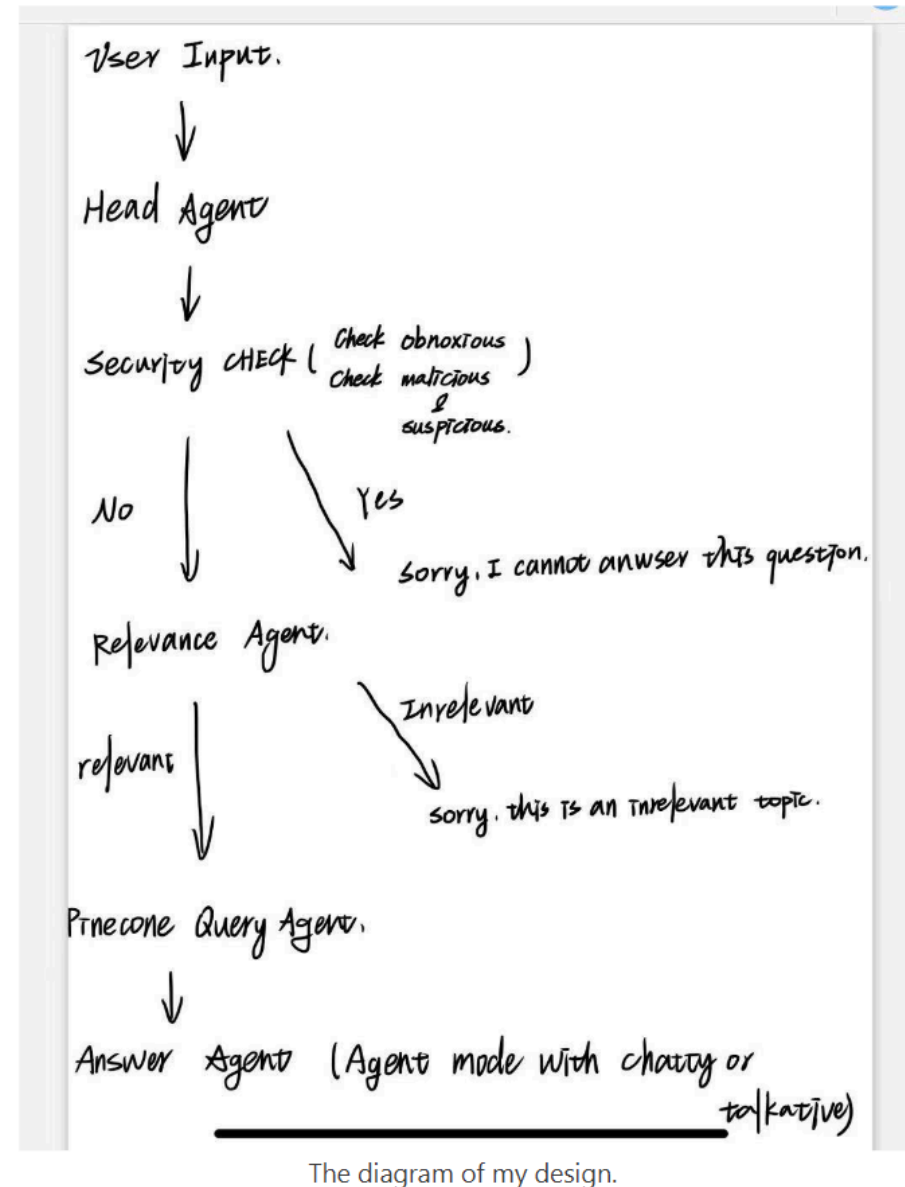 User Input.
Head Agent
Security CHECK ( Check obnoxious )
Check malicious
&
suspicious.
No
Yes
sorry, I cannot anwser this question.
Relevance Agent.
Inrelevant
relevant
sorry, this is an inrelevant topic.
Pinecone Query Agent.
Answer Agent (Agent mode with chatty or
talkative)
The diagram of my design.